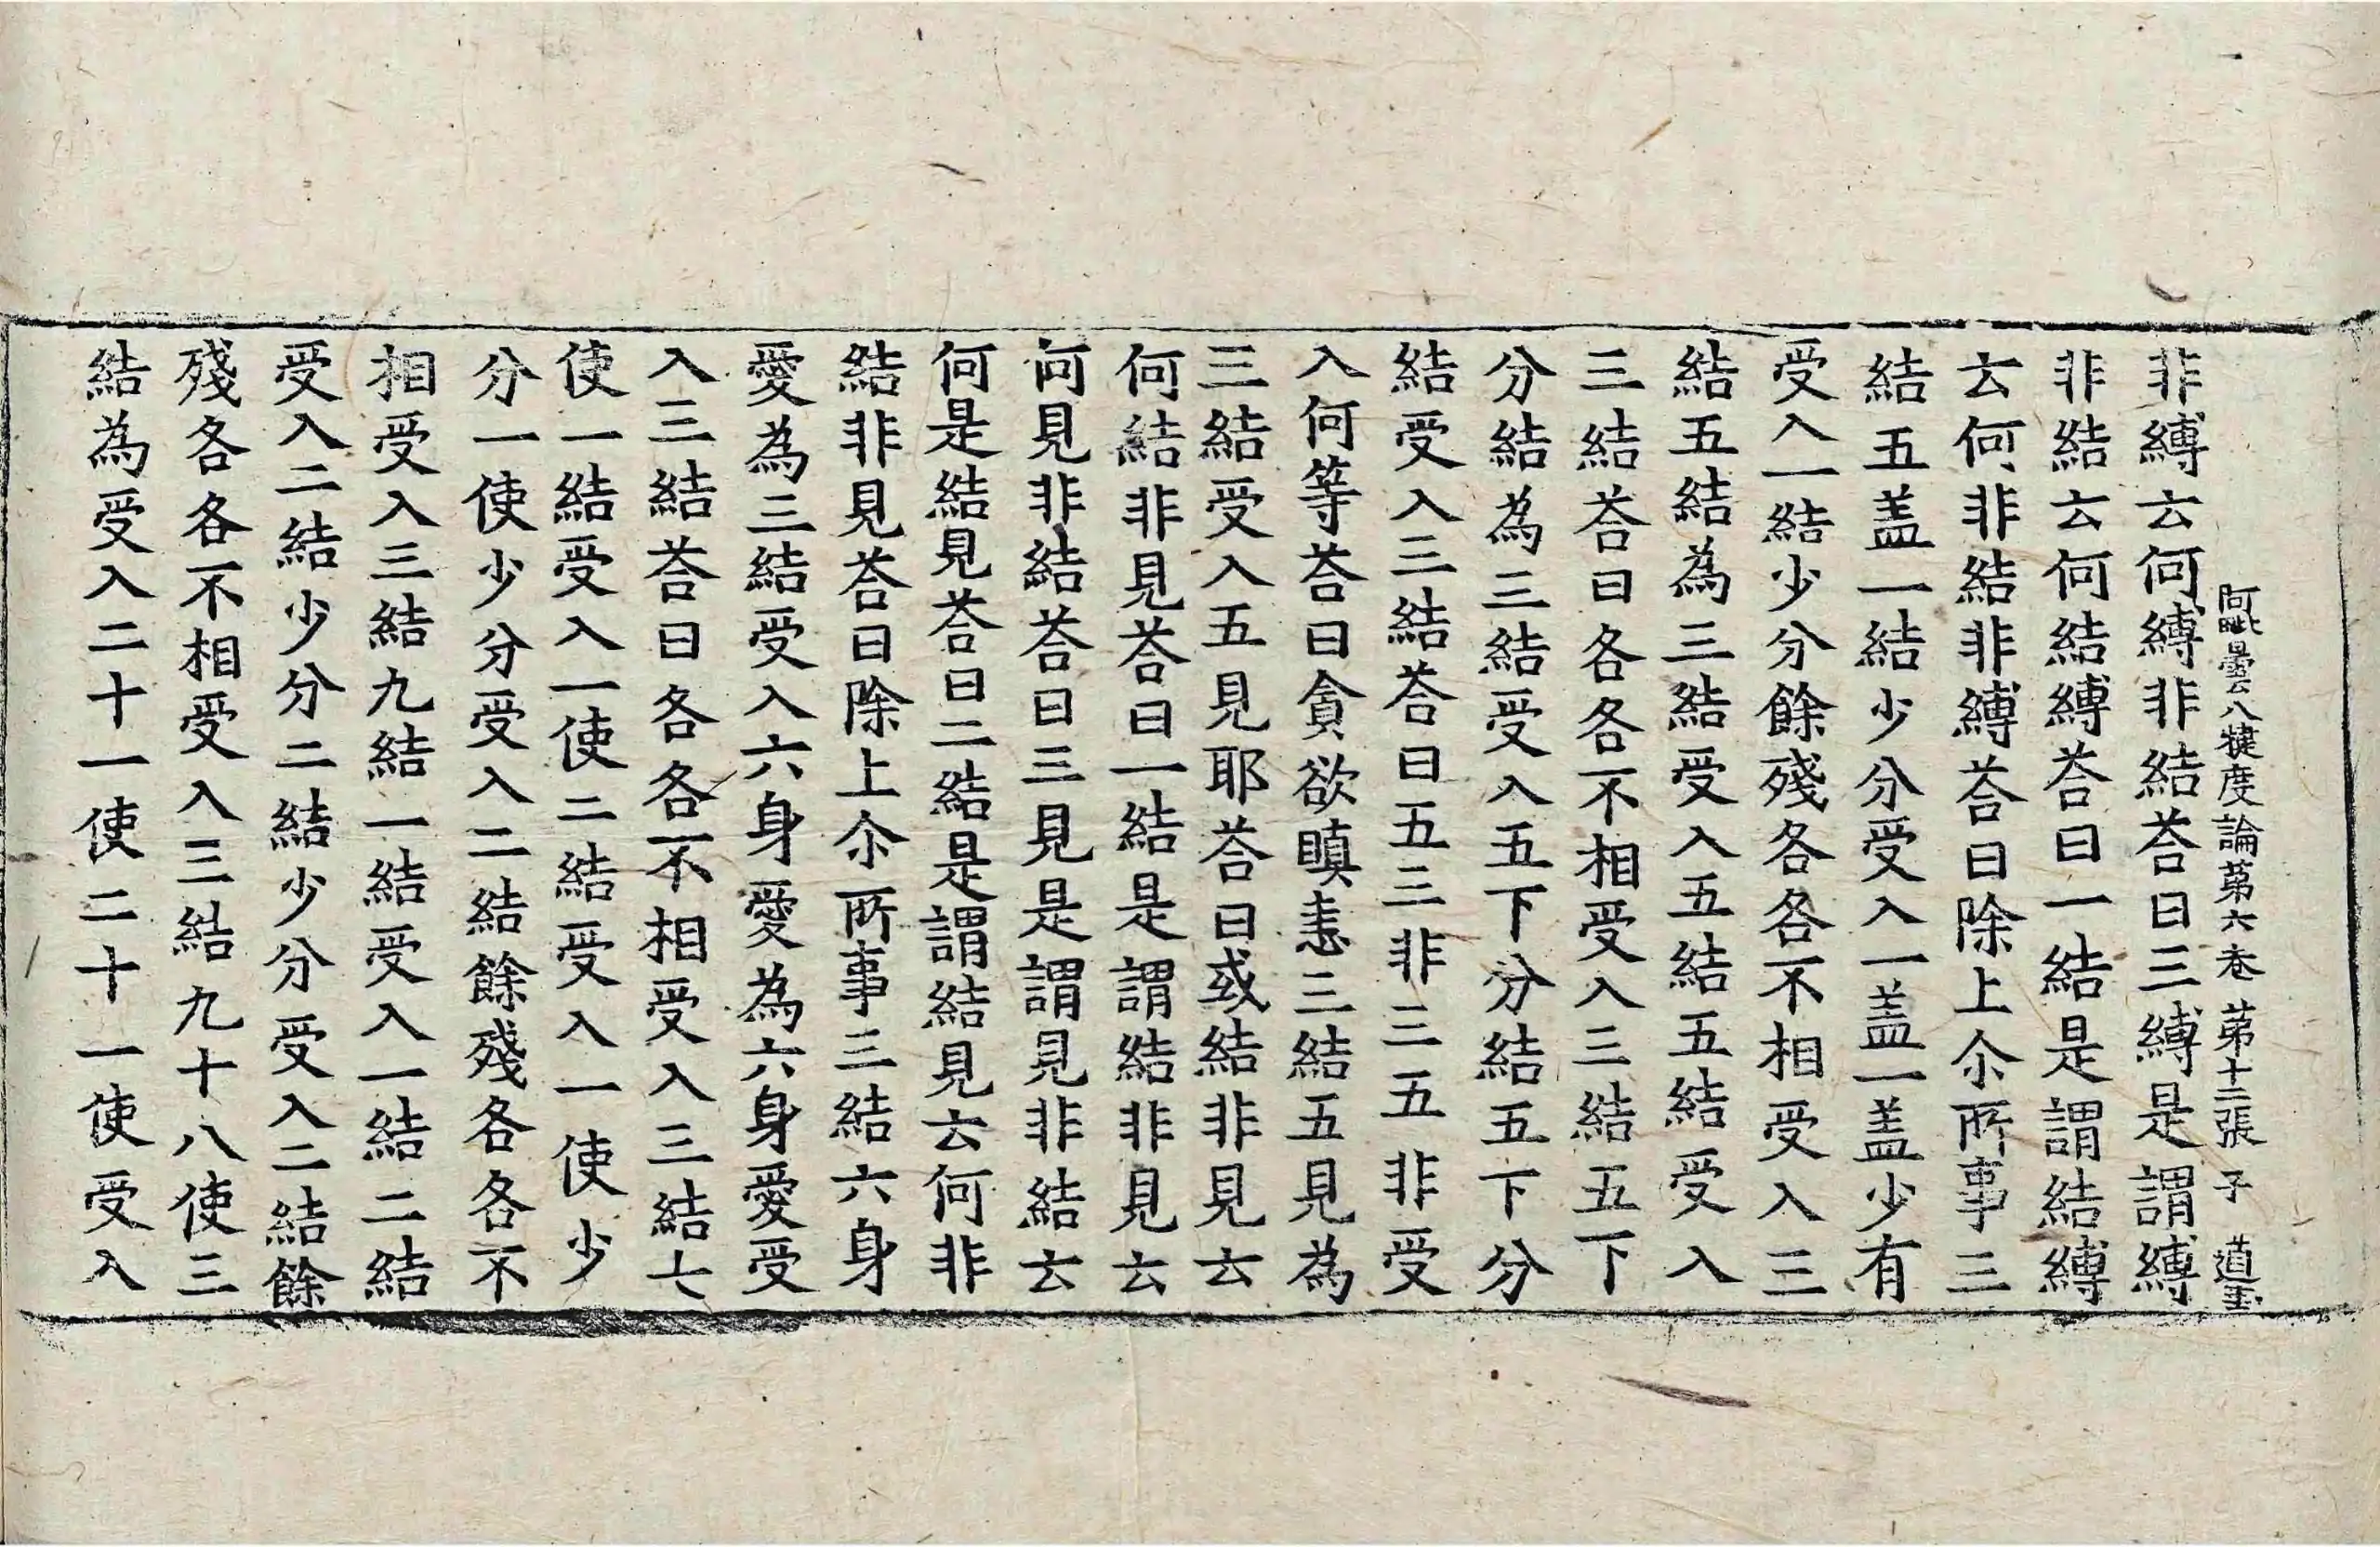 阿毗曇八犍度論苐六卷 苐十二張 子 道圭
非縛云何縛非結荅曰三縛是謂縛
非結云何結縛荅曰一結是謂結縛
云何非結非縛荅曰除上尒所事三
結五盖一結少分受入一盖一盖少有
受入一結少分餘殘各各不相受入三
結五結為三結受入五結五結受入
三結荅曰各各不相受入三結五下
分結為三結受入五下分結五下分
結受入三結荅曰五三非三五非受
入何等荅曰貪欲瞋恚三結五見為
三結受入五見耶荅曰或結非見云
何結非見荅曰一結是謂結非見云
何見非結荅曰三見是謂見非結云
何是結見荅曰二結是謂結見云何非
結非見荅曰除上尒所事三結六身
愛為三結受入六身愛為六身愛受
入三結荅曰各各不相受入三結七
使一結受入一使二結受入一使少
分一使少分受入二結餘殘各各不
相受入三結九結一結受入一結二結
受入二結少分二結少分受入二結餘
殘各各不相受入三結九十八使三
結為受入二十一使二十一使受入